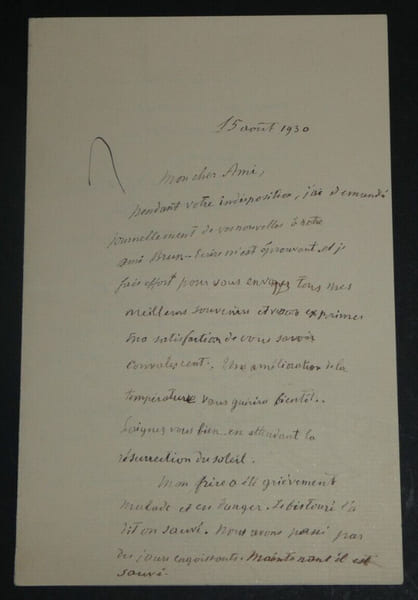 15 août 1930
Mon cher Ami,
pendant votre indisposition, j'ai demandé
journellement de vos nouvelles à notre
ami Brun – Écrire m'est éprouvant, et je
fais effort pour vous envoyer tous mes
meilleurs souvenirs et vous exprimer
ma satisfaction de vous savoir
convalescent. Une amélioration de la
température vous guérira bientôt..
Soignez vous bien en attendant la
résurrection du soleil.
Mon frère a été grièvement
malade et en danger. Le bistouri l'a
dit on sauvé. Nous avons passé par
des jours angoissants. Maintenant il est
sauvé.